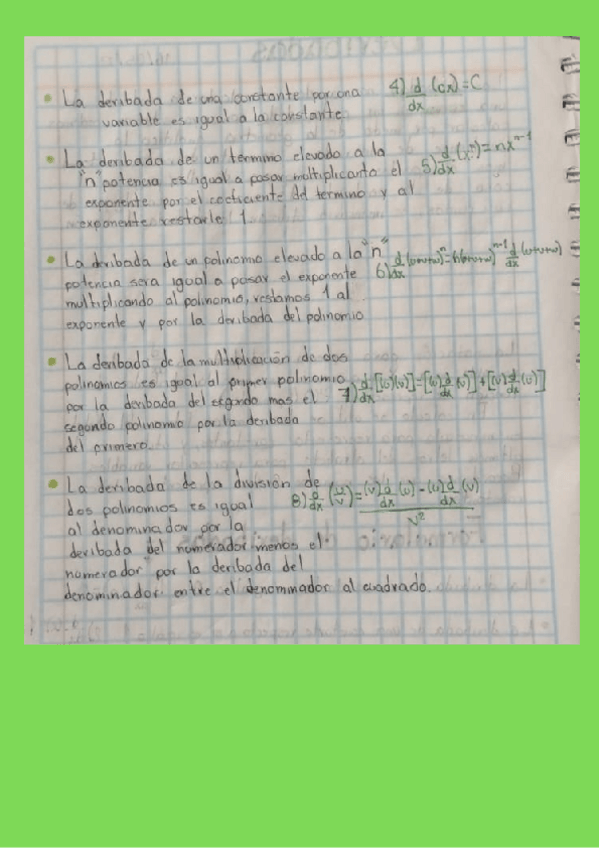 • La deribada de una constante por una 4) d/dx (cx) = C
variable es igual a la constante
• La deribada de un termino elevado a la
"n" potencia es igual a pasar multiplicanto el 5) d/dx (xⁿ) = nxⁿ⁻¹
exponente por el coeficiente del termino y al
exponente restarle 1.
• La deribada de un polinomio elevado a la "n"
potencia sera igual a pasar el exponente 6) d/dx (u+v+w)ⁿ = n(u+v+w)ⁿ⁻¹ d/dx (u+v+w)
multiplicando al polinomio, restamos 1 al
exponente y por la deribada del polinomio
• La deribada de la multiplicación de dos
polinomios es igual al primer polinomio 7) d/dx [(u)(v)] = [(u) d/dx (v)] + [(v) d/dx (u)]
por la deribada del segundo mas el
segundo polinomio por la deribada
del primero.
• La deribada de la división de
dos polinomios es igual 8) d/dx (u/v) = (v) d/dx (u) - (u) d/dx (v) / v²
al denominador por la
deribada del numerador menos el
numerador por la deribada del
denominador entre el denominador al cuadrado.